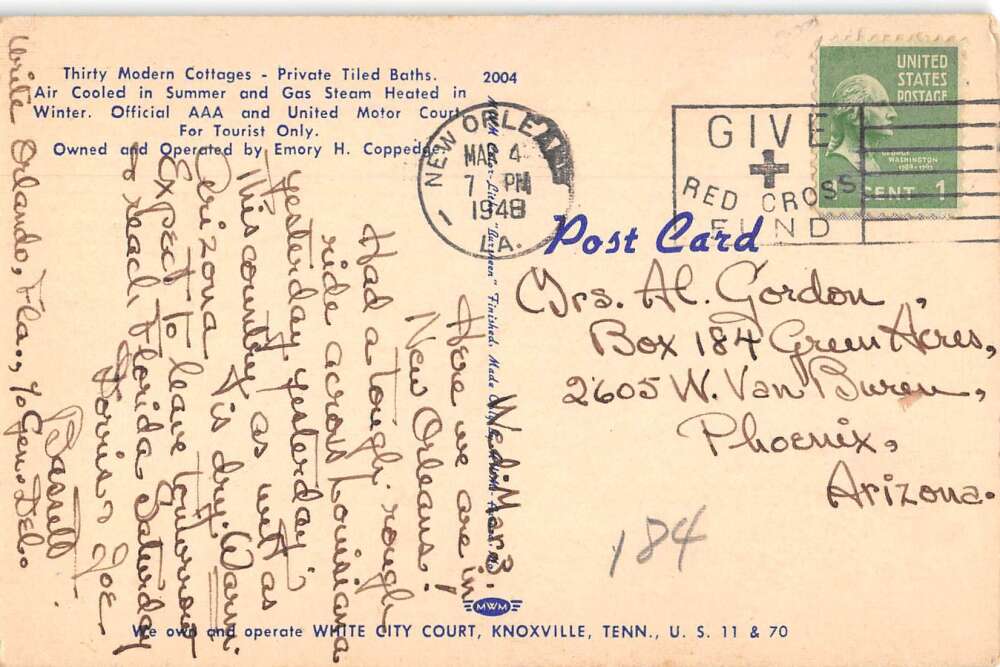 Thirty Modern Cottages - Private Tiled Baths.
Air Cooled in Summer and Gas Steam Heated in
Winter. Official AAA and United Motor Court.
For Tourist Only.
Owned and Operated by Emory H. Coppedge.
2004
NEW ORLEANS
MAR 4
7 PM
1948
LA.
GIVE
RED CROSS
FUND
UNITED
STATES
POSTAGE
GEORGE
WASHINGTON
1789-1797
CENT 1
Post Card
Mrs. Al. Gordon,
Box 184 Green Acres,
2605 W. Van Buren,
Phoenix,
Arizona.
184
Wed. Mar 3.
Here we are in
New Orleans!
Had a tough, rough
ride across Louisiana
yesterday yesterday
This country as wet as
Arizona is dry. Warm.
Expect to leave tomorrow
to reach Florida Saturday
Dorris & Joe
Bassett
Write Orlando, Fla., % Gen. Del.
"Tuxpeen" Finished. Made Only
MWM
We own and operate WHITE CITY COURT, KNOXVILLE, TENN., U. S. 11 & 70